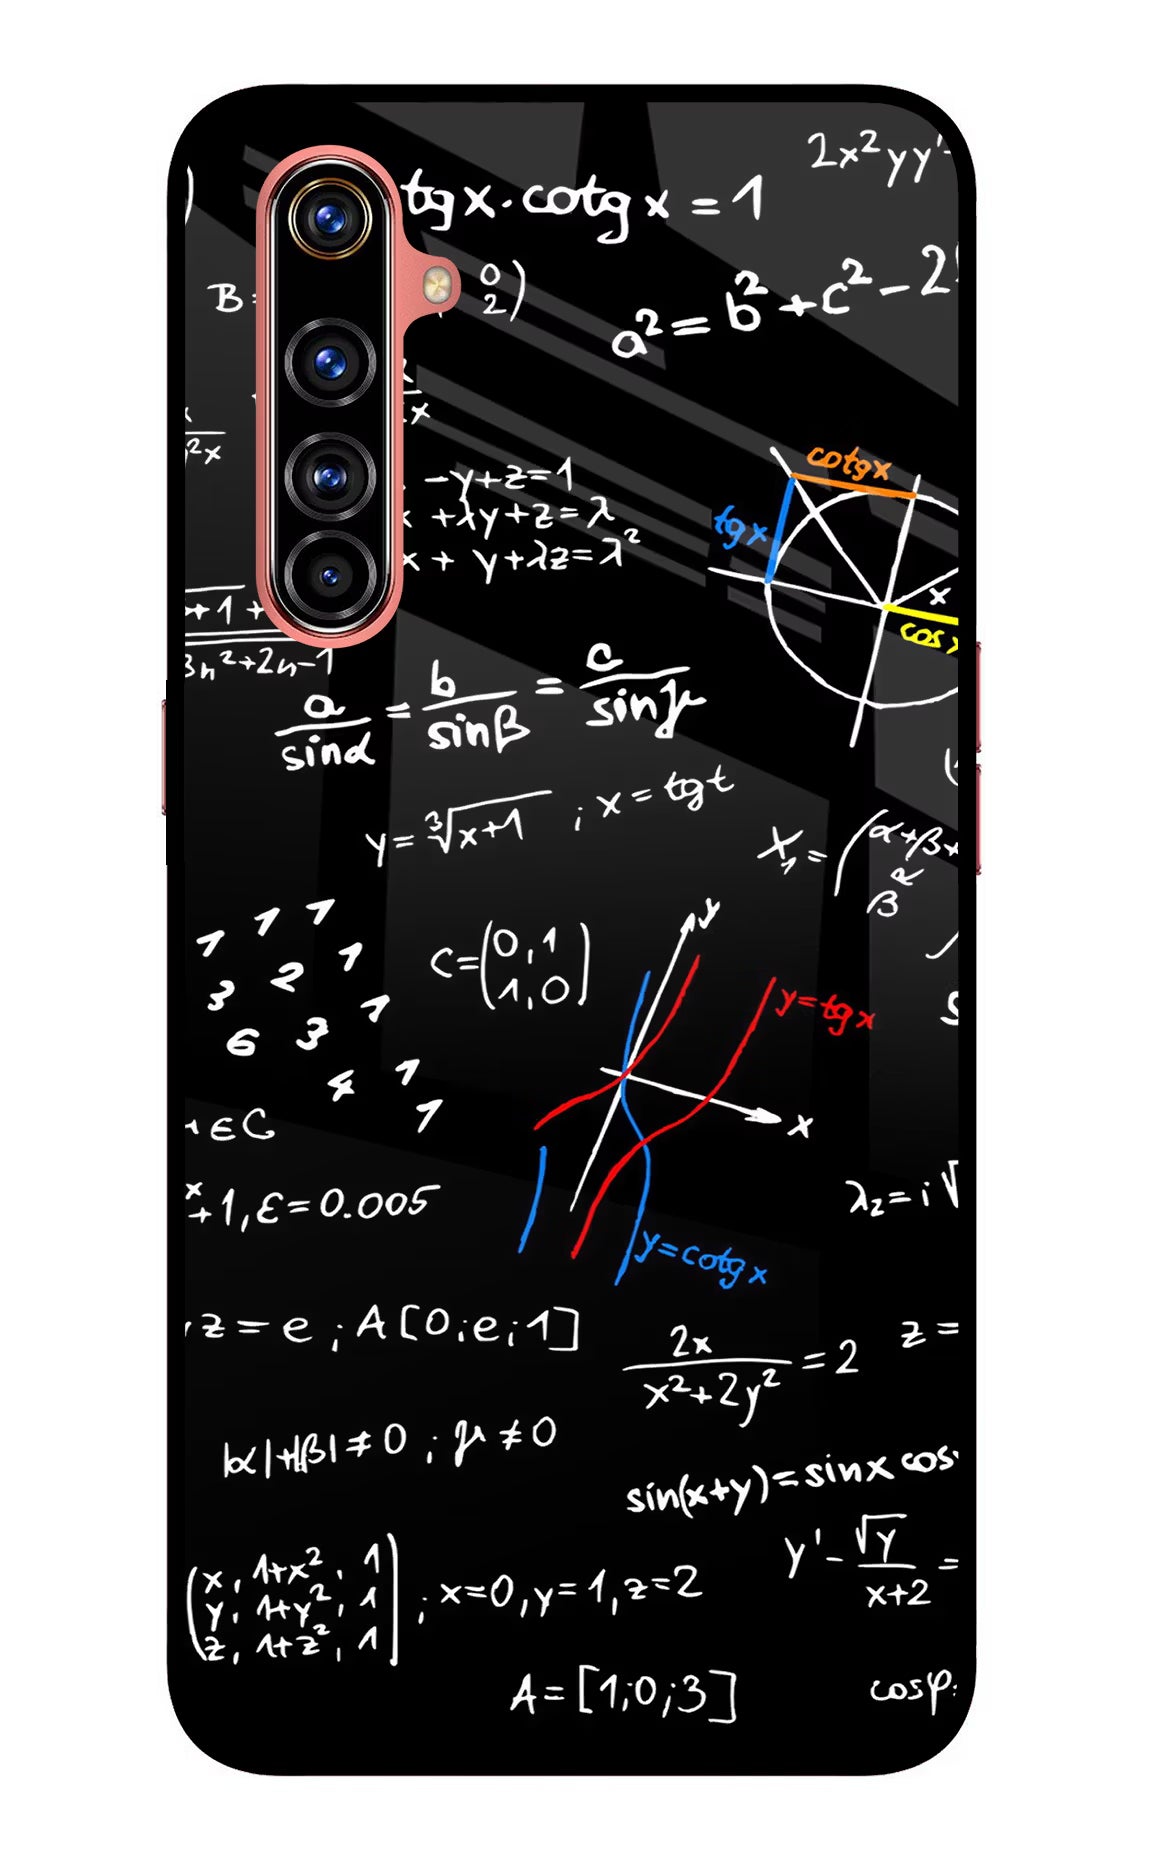 2x²yy'-
tgx·cotgx=1
B=
0
2)
a²=b²+c²-2
²x
x
-y+z=1
x+λy+z=λ
x+y+λz=λ²
cotgx
tgx
x
cosx
+1+
3n²+2n-1
a/sinα=b/sinβ=c/sinγ
y=∛x+1 ; x=tgt
X₁=(α+β+
β²
1 1 1
3 2 1
6 3 1
4 1
1
C=(0,1
1,0)
y
y=tgx
x
y=cotgx
∈C
+1,ε=0.005
λ₂=i√
z=e;A[0;e;1]
2x/x²+2y²=2
z=
|α|+|β|≠0;γ≠0
sin(x+y)=sinx cos
y'-√y/x+2=
(x, 1+x², 1
y, 1+y², 1
z, 1+z², 1) ; x=0,y=1,z=2
A=[1;0;3]
cosφ=